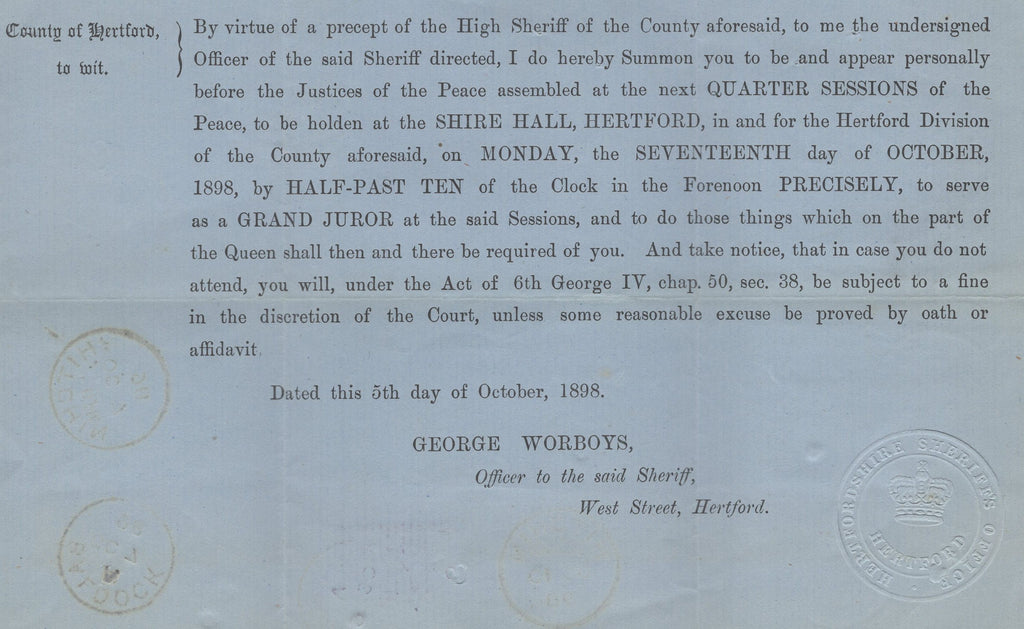 County of Hertford,
to wit.
By virtue of a precept of the High Sheriff of the County aforesaid, to me the undersigned
Officer of the said Sheriff directed, I do hereby Summon you to be and appear personally
before the Justices of the Peace assembled at the next QUARTER SESSIONS of the
Peace, to be holden at the SHIRE HALL, HERTFORD, in and for the Hertford Division
of the County aforesaid, on MONDAY, the SEVENTEENTH day of OCTOBER,
1898, by HALF-PAST TEN of the Clock in the Forenoon PRECISELY, to serve
as a GRAND JUROR at the said Sessions, and to do those things which on the part of
the Queen shall then and there be required of you. And take notice, that in case you do not
attend, you will, under the Act of 6th George IV, chap. 50, sec. 38, be subject to a fine
in the discretion of the Court, unless some reasonable excuse be proved by oath or
affidavit
Dated this 5th day of October, 1898.
GEORGE WORBOYS,
Officer to the said Sheriff,
West Street, Hertford.
HERTFORDSHIRE SHERIFF'S OFFICE
HERTFORD